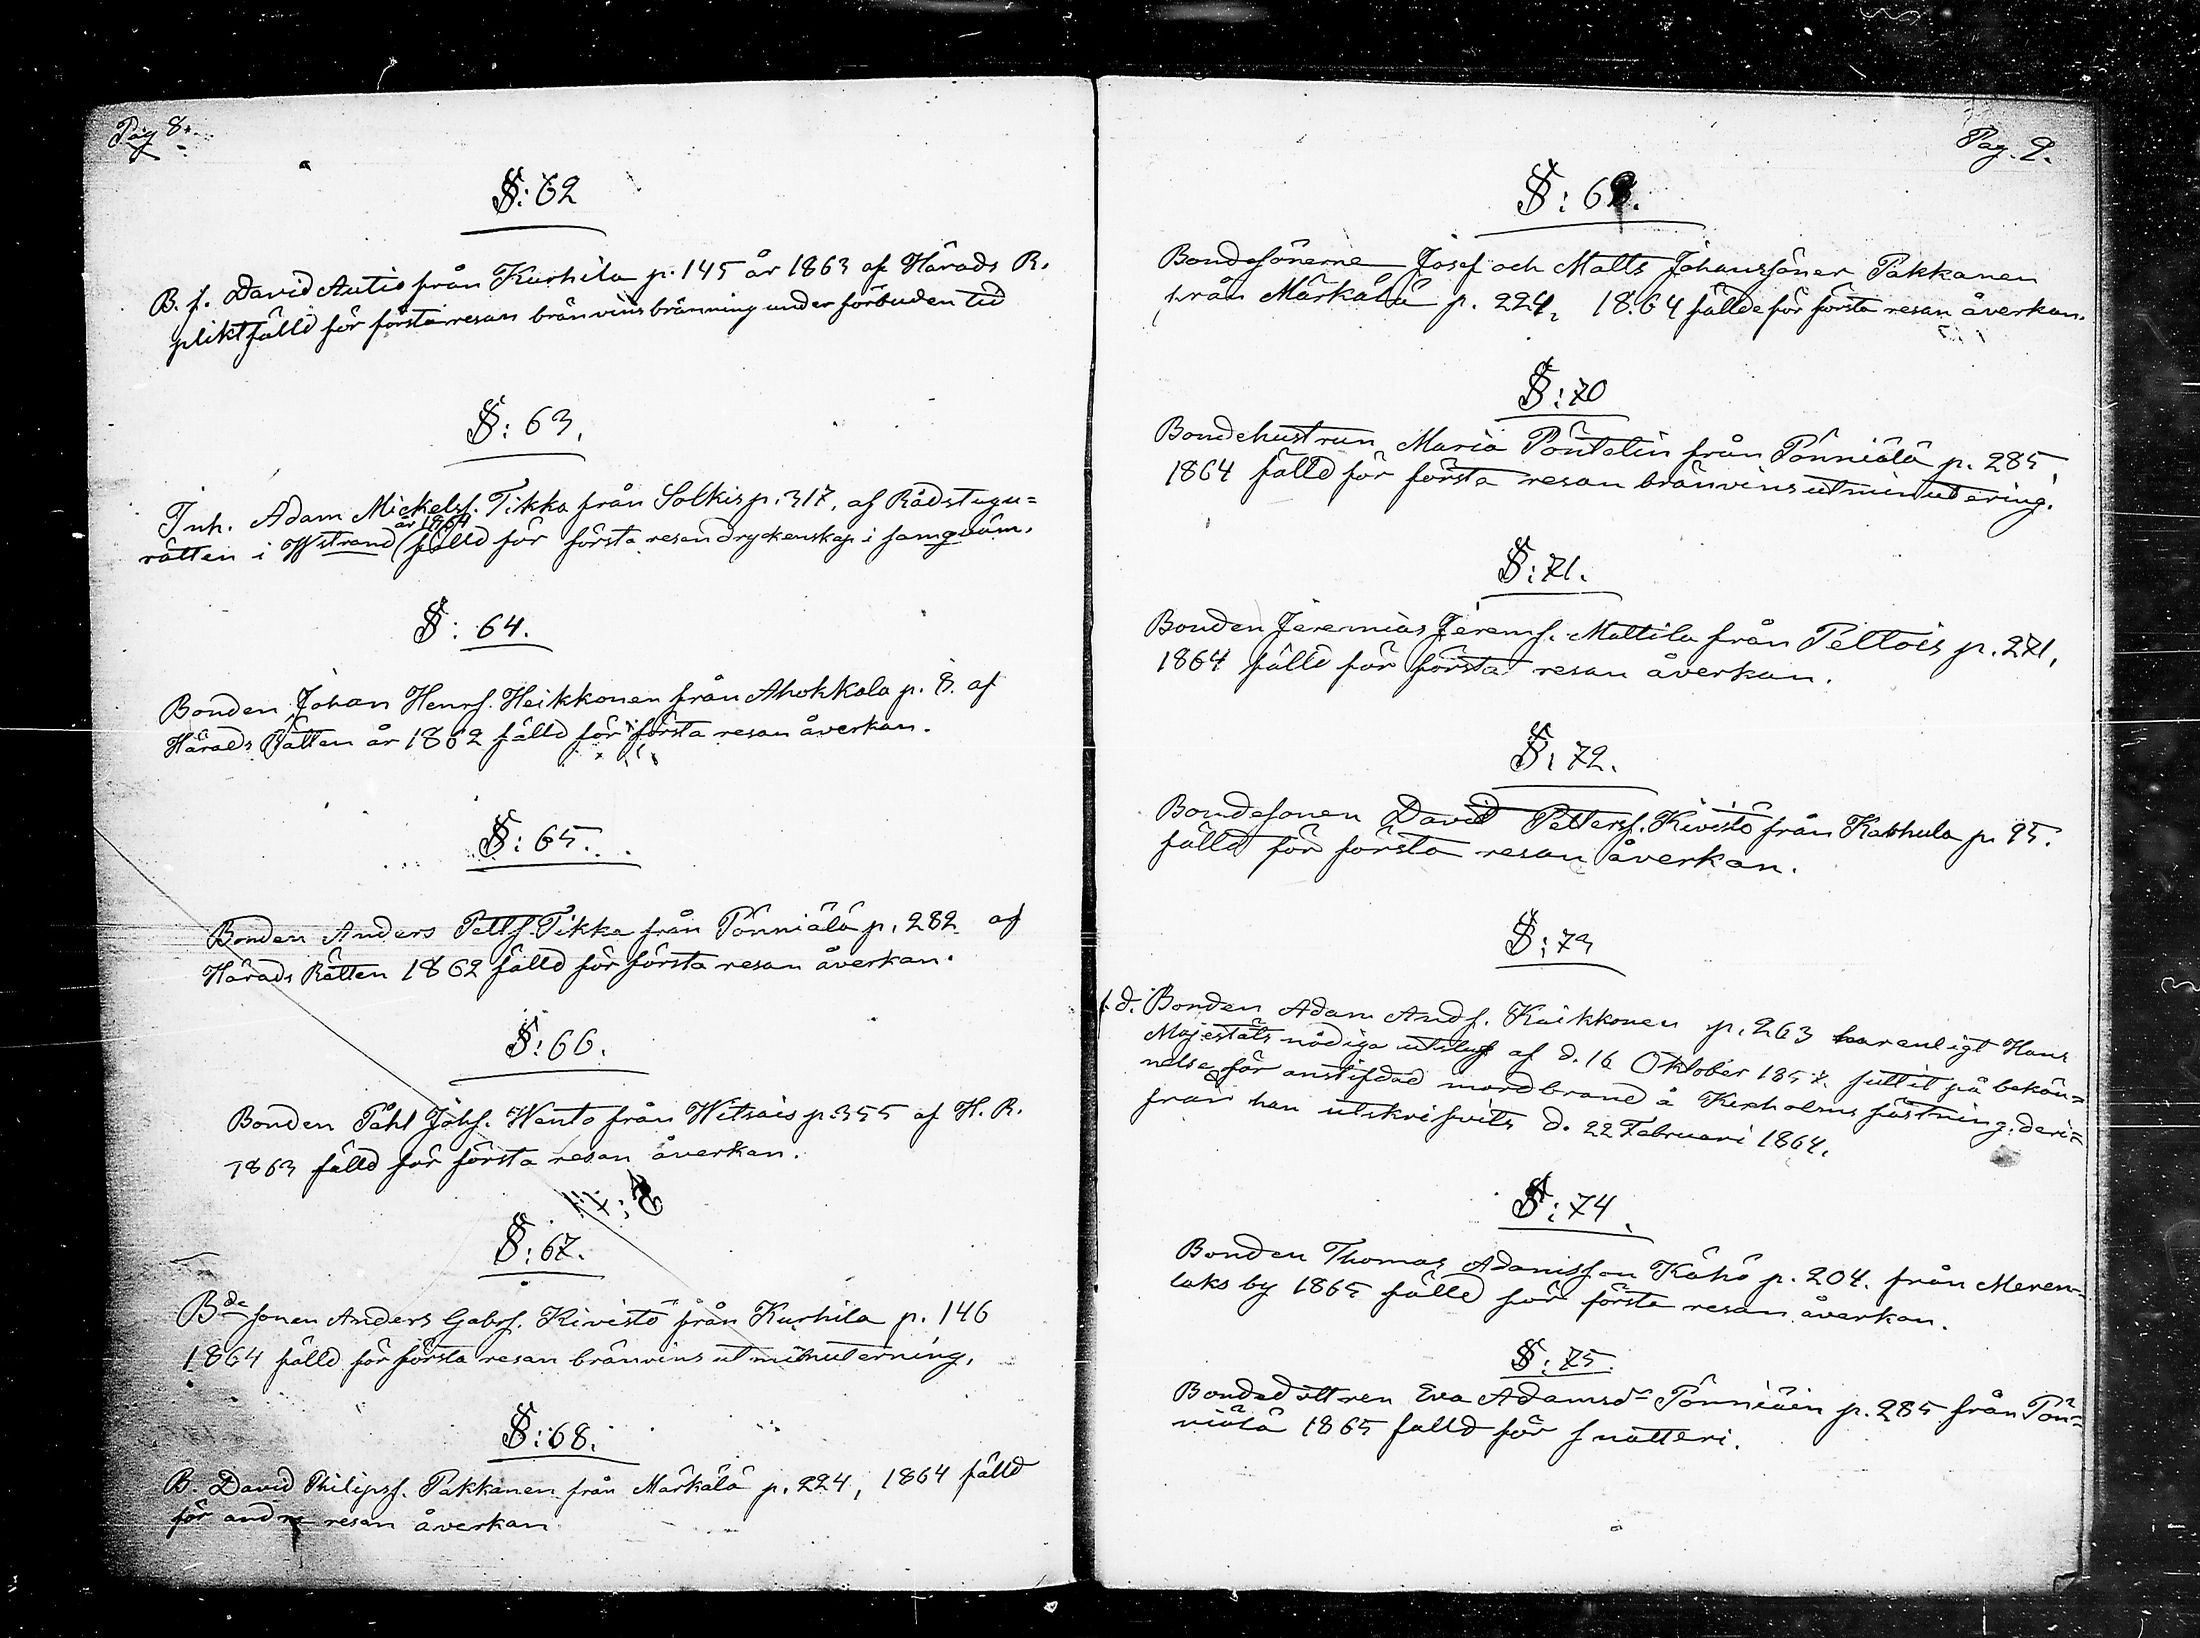 Pag 8.
§: 62
B. s. David Autio från Kurhila p. 145 år 1863 af Härads R.
pliktfälld för första resan brännvinsbränning under förbuden tid
§: 63.
Inh. Adam Mickelss. Tikka från Solkis p. 317, af Rådstugu=
år 1864
rätten i Wstrand fälld för första resan dryckenskap i samqväm.
§: 64.
Bonden Johan Henrs. Heikkonen från Ahokkala p. 8. af
Härads Rätten år 1862 fälld för första resan åverkan.
§: 65.
Bonden Anders Petts. Tikka från Pönniälä p. 282 af
Härads Rätten 1862 fälld för första resan åverkan.
§: 66.
Bonden Påhl Johs. Wento från Witsais p. 355 af H. R.
1863 fälld för första resan åverkan.
§: 67.
Bde sonen Anders Gabrs. Kivistö från Kurhila p. 146
1864 fälld för första resan bränvins utminuterning.
§: 68.
B. David Philipss. Pakkanen från Märkälä p. 224, 1864 fälld
för andra resan åverkan
Pag. 9.
§: 69.
Bondesönerne Josef och Matts Johanssöner Pakkanen
från Märkälä p. 224, 1864 fällde för första resan åverkan.
§: 70
Bondehustrun Maria Pöntelin från Pönniälä p. 285,
1864 fälld för första resan bränvinsutminutering.
§: 71.
Bonden Jeremias Jerems. Mattila från Peltois p. 271,
1864 fälld för första resan åverkan.
§: 72.
Bondesonen David Petterss. Kivistö från Kathula p. 95.
fälld för första resan åverkan.
§: 73
f. d. Bonden Adam Ands. Kaikkonen p. 263 har enligt Hans
Majestäts nådiga utslag af d. 16 Oktober 1857 suttit på bekän=
nelse för anstiftad mordbrand å Kexholms fästning, deri=
från han utskrifvits d. 22 Februari 1864.
§: 74.
Bonden Thomas Adamsson Kähö p. 204. från Meren=
laks by 1865 fälld för första resan åverkan.
§: 75.
Bondedottren Eva Adamsdr Pönniäin p. 285 från Pön=
niälä 1865 fälld för snatteri.